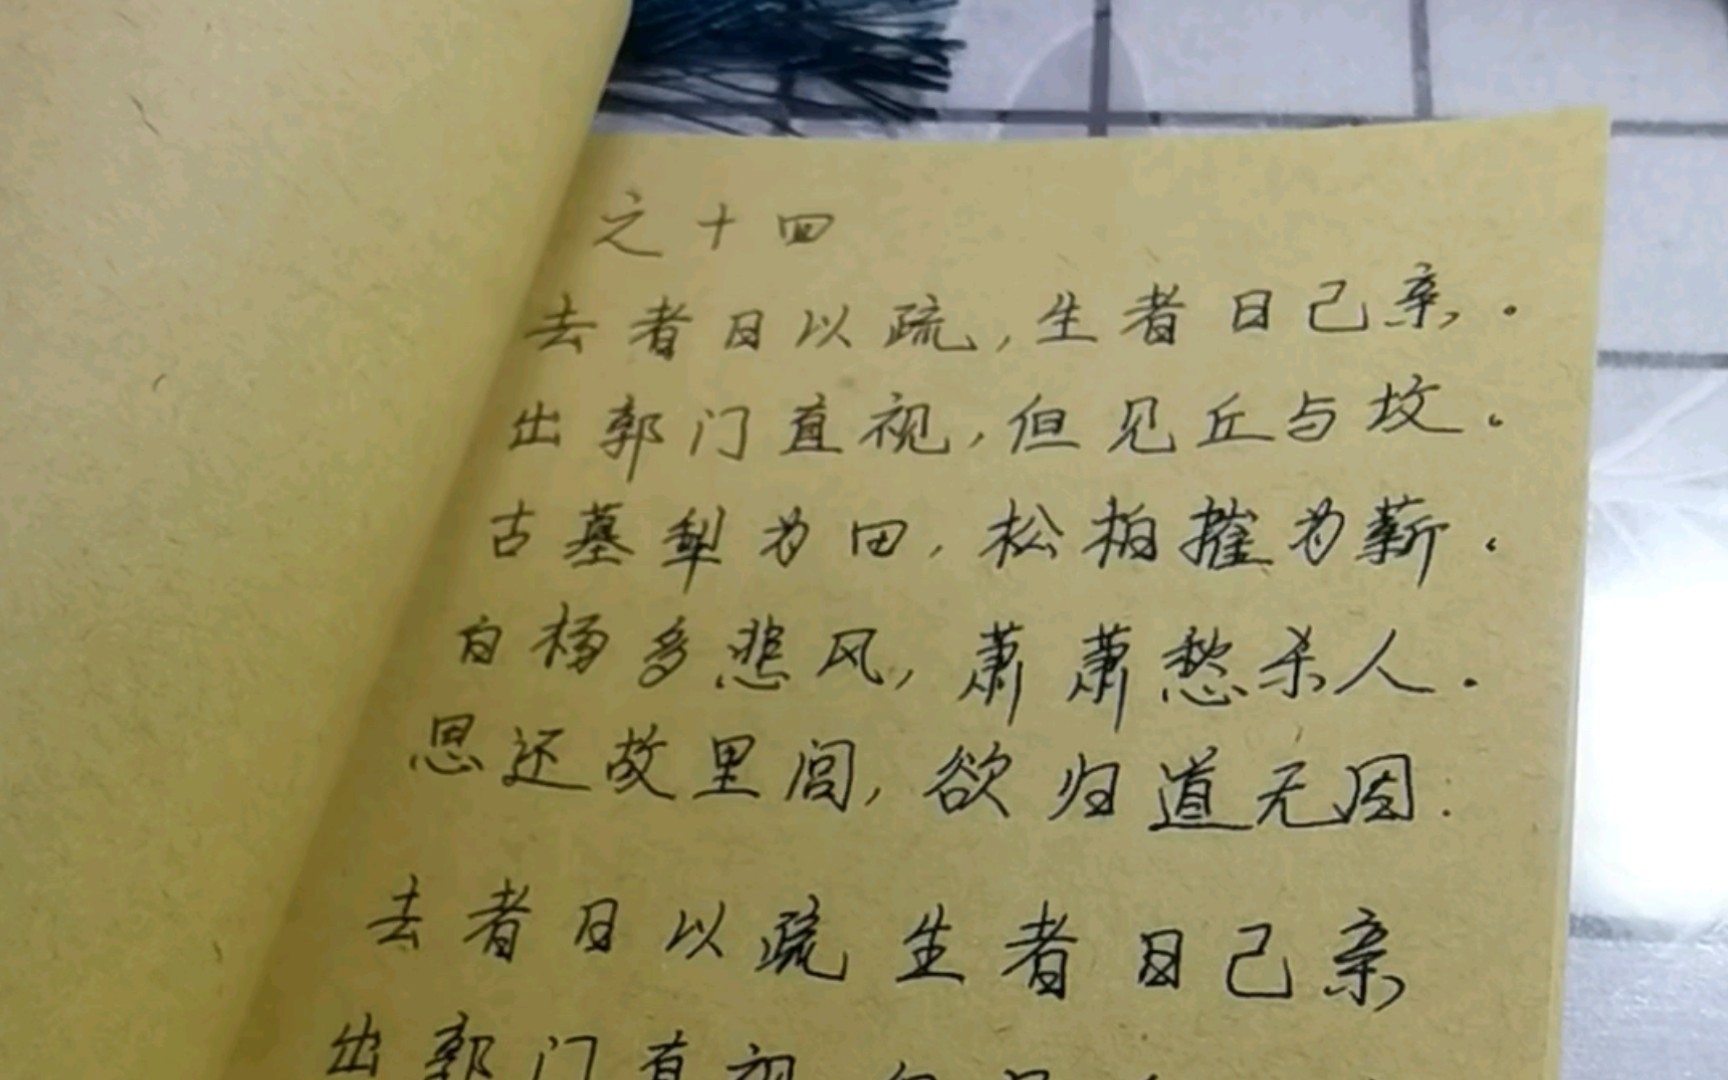 之十四
去者日以疏，生者日己亲。
出郭门直视，但见丘与坟。
古墓犁为田，松柏摧为薪。
白杨多悲风，萧萧愁杀人。
思还故里闾，欲归道无因.
去者日以疏 生者日己亲
出郭门直视 但见